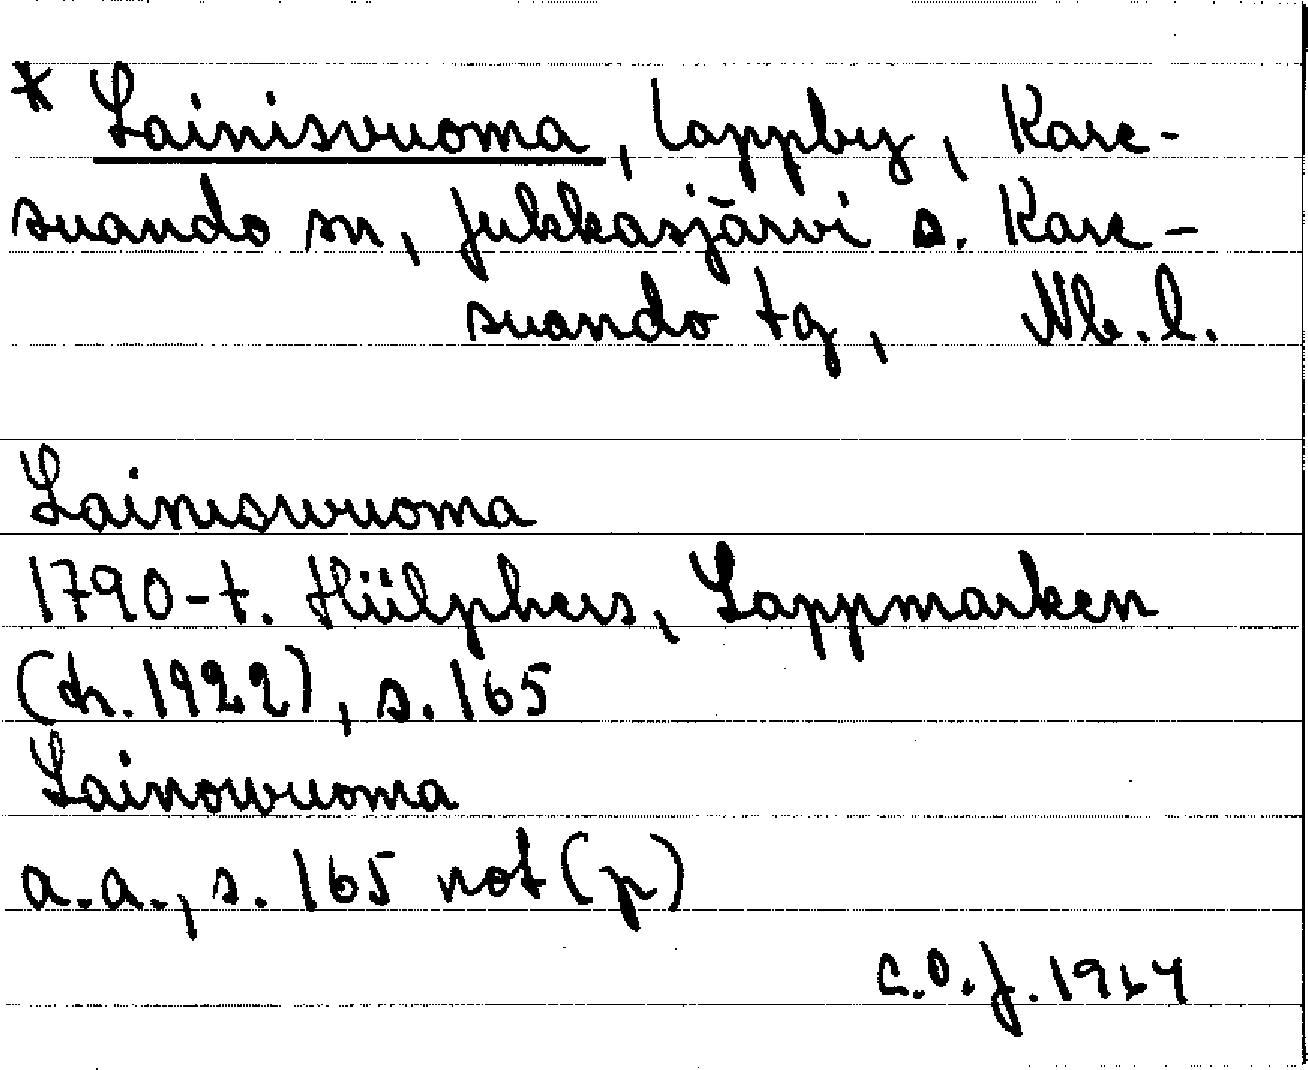 * Lainisvuoma, lappby, Kare-
suando sn, Jukkasjärvi o. Kare-
suando tg, Nb. l.
Lainiswuoma
1790-t. Hülphers, Lappmarken
(tr. 1922), s. 165
Lainowuoma
a.a., s. 165 not (p)
C.O.J. 1964